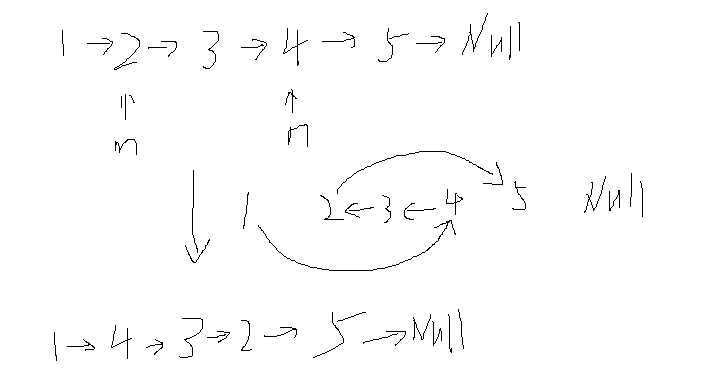 1 → 2 → 3 → 4 → 5 → Null
m n
1 2 ← 3 ← 4 5 Null
1 → 4 → 3 → 2 → 5 → Null